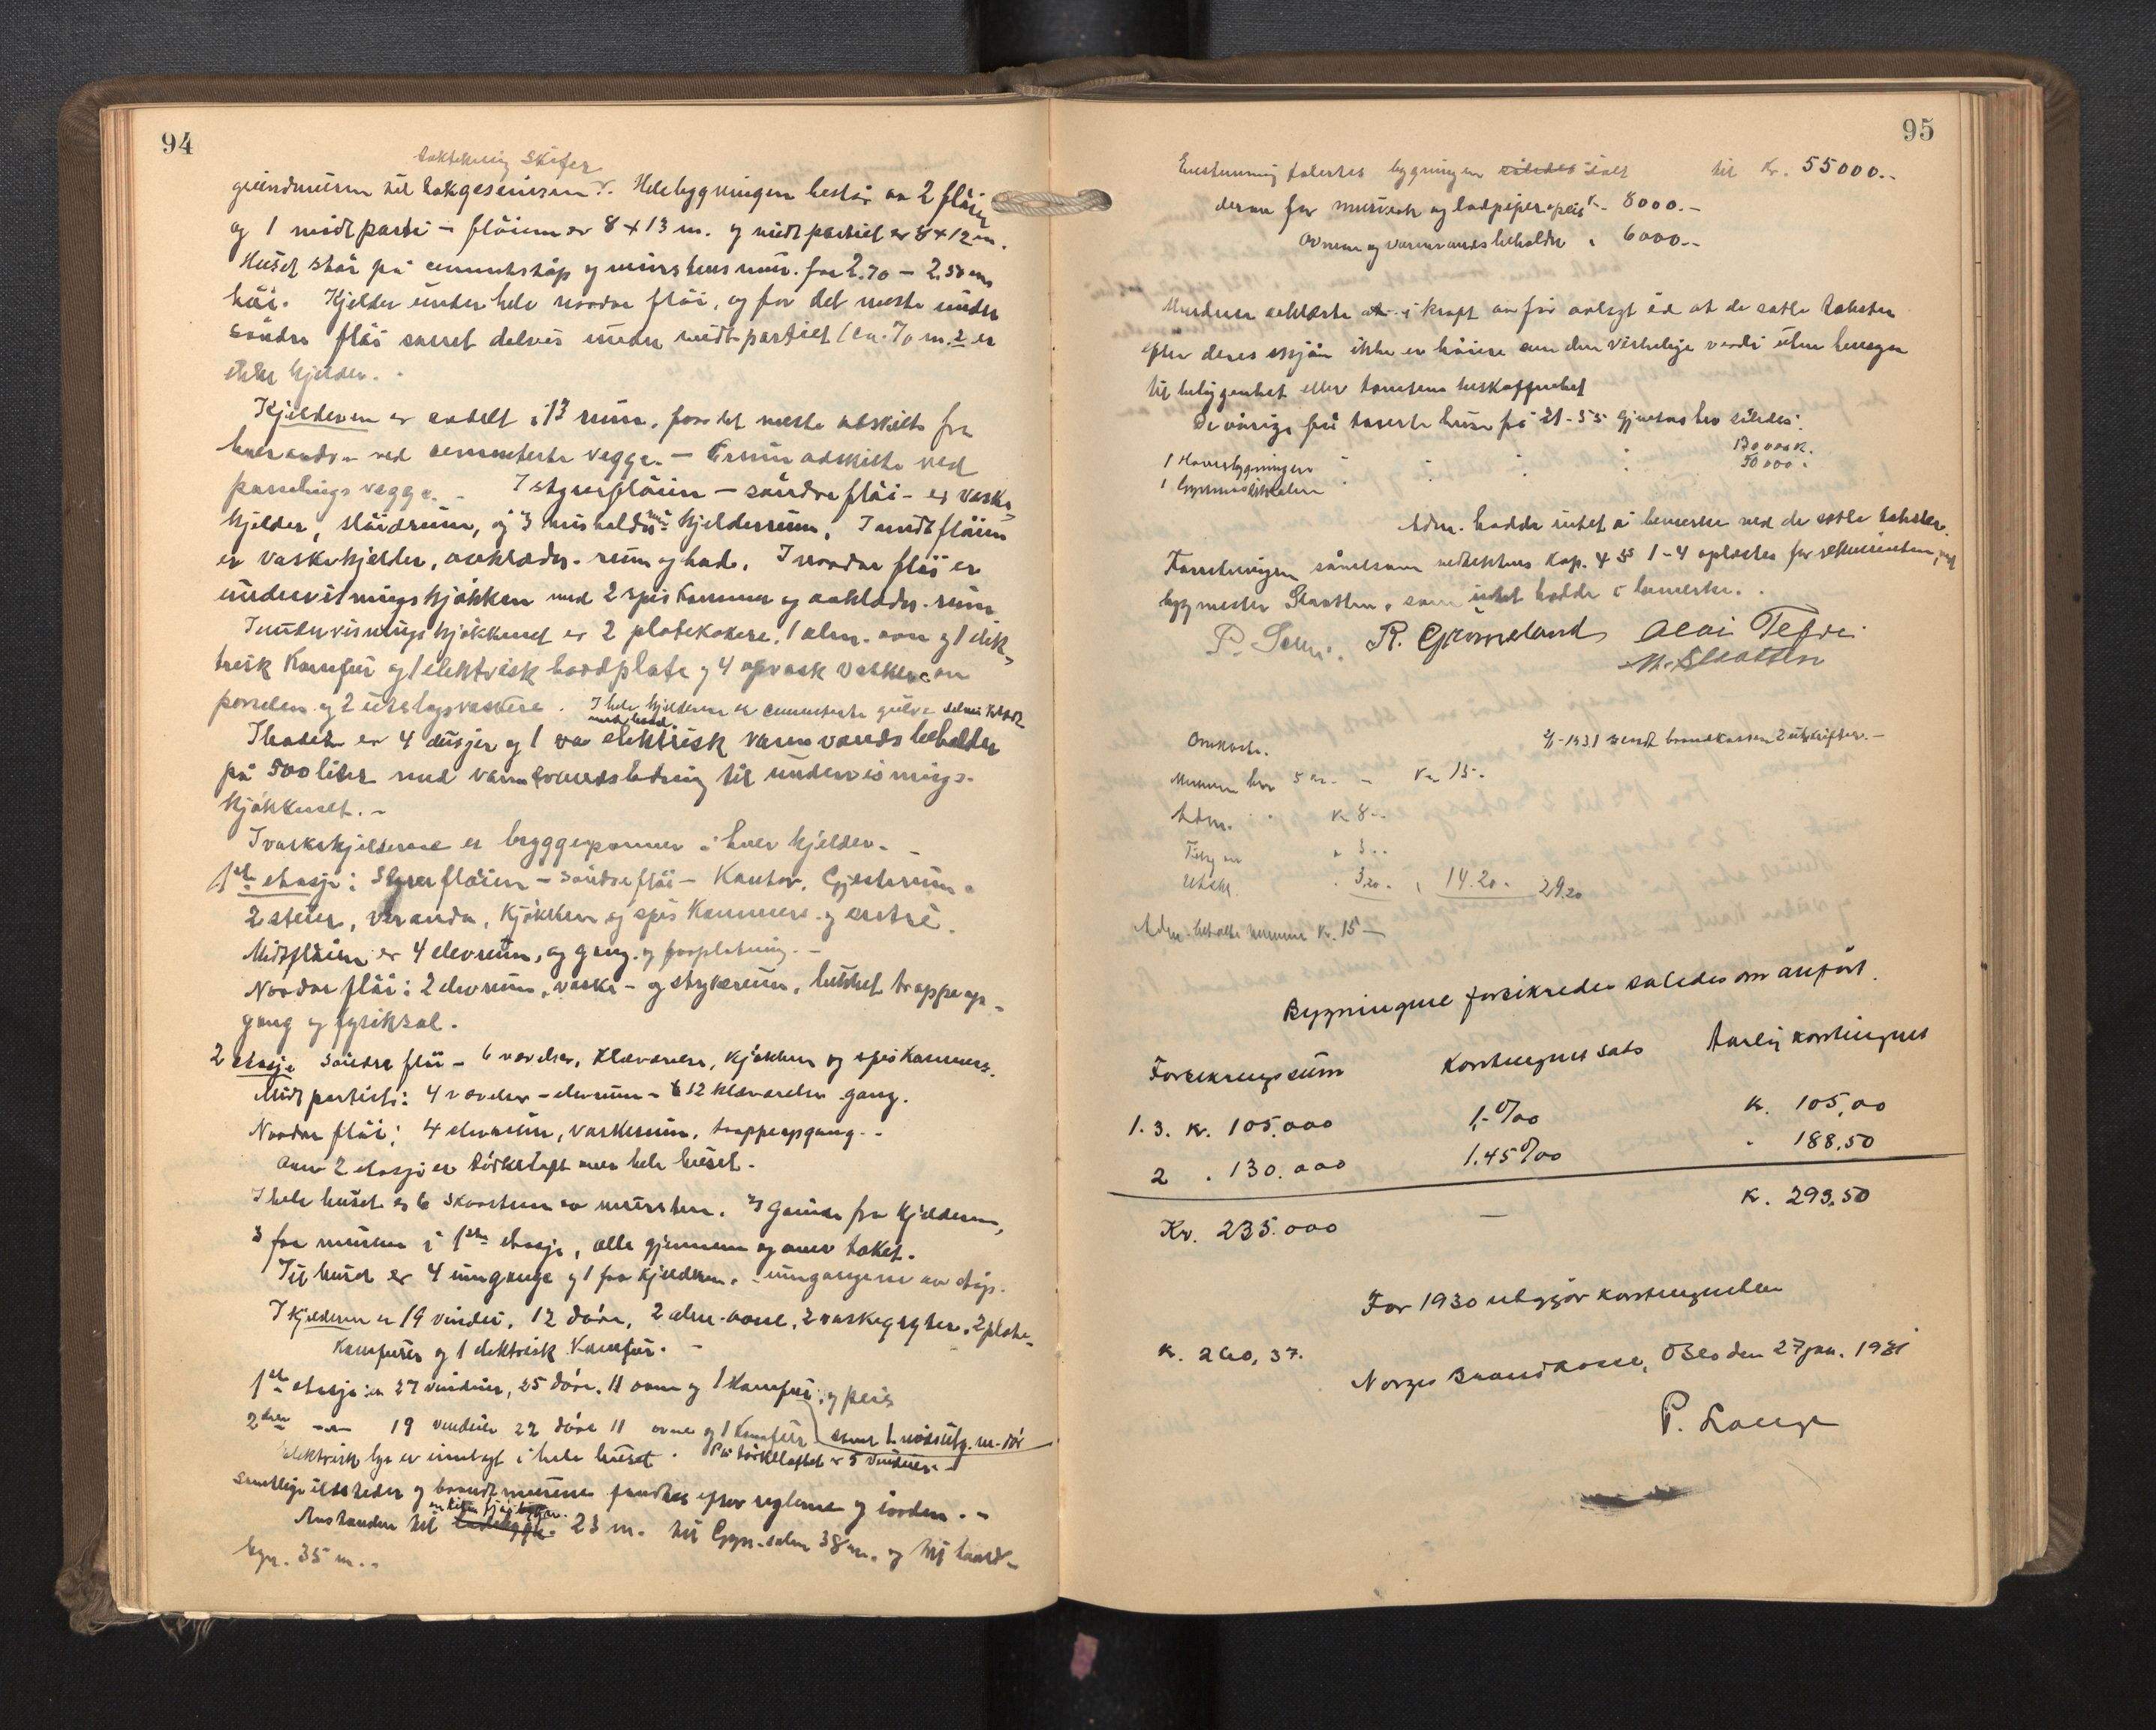 94
taktekning Skifer
grundmuren til takgesimsen. Helebygningen består av 2 fløier
og 1 midtparti - fløiene er 8 x 13 m. og midtpartiet er 8 x 12 m.
Huset står på cementstøp og murstens mur. fra 2.70 - 2.50 m
høi. Kjelder under hele nordre fløi, og for det meste under
søndre fløi samt delvis under midtpartiet (ca. 70 m.2 er
ikke kjelder. -
Kjelderen er avdelt i 13 rum, for det meste adskilt fra
hverandre ved cementerte vegger. - rum adskilte ved
panelings vegger. - I styrerfløien - søndre fløi - er vaske
kjelder, sløidrum, og 3 kjelderrum, I midtfløien
er vaskekjelder, avklædn.-rum og bad. I nordre fløi er
undervisningskjøkken med 2 spiskammer og avklædn.rum
I undervisningskjøkkenet er 2 platekokere, 1 alm. ovn og 1 elek
trisk Komfur og 1 elektrisk bordplate og 4 opvask vaskere av
porselen og 2 utslagsvaskere. I hele kjelderen er cementerte gulve delvis
med bord.
I badet er 4 dusjer og 1 elektrisk varmvandsbeholder
på 500 liter med varmtvandsledning til undervisnings-
kjøkkenet. -
I vaskekjelderne er bryggepanner i hver kjelder. -
1ste etasje: Styrerfløien - søndre fløi - Kontor, Gjesterum
2 stuer, veranda, Kjøkken og spiskammer og entré.
Midtfløien er 4 elevrum, og gang og forplatning. -
Nordre fløi: 2 elevrum, vaske- og strykerum, lukket trappeop-
gang og fysiksal.
2 etasje Søndre fløi - 6 værelser, Klæværelse, kjøkken og spiskammers.
Midtpartiet: 4 værelser - elevrum - 12 klæværelser gang.
Nordre fløi: 4 elevrum, vaskerum, trappeopgang. -
Over 2 etasje er tørkeloft over hele huset.
I hele huset er 6 skorstene av mursten. 3 gaaende fra kjelderen,
3 fra muren i 1ste etasje, alle gjennem og over taket.
Til huset er 4 innganger og 1 fra kjelderen. - inngangene av støp.
I Kjelderen er 19 vinduer, 12 døre, 2 alm. ovne, 2 vaskegryter, 2 plate-
komfurer og 1 elektrisk Komfur. -
1ste etasje: er 27 vinduer, 25 døre, 11 ovne og 1 Komfur, og peis
2den -"- 19 vinduer 22 døre 11 ovne og 1 Komfur samt 1 nødsutg. m. dør
Elektrisk lys er innlagt i hele huset. På tørkeloftet er 5 vinduer. -
Samtlige ildsteder og brandmurene fandtes efter reglene og iorden. -
Avstanden til 23 m. til Gym.salen 38 m. og til
bygn. 35 m. -
95
Enstemmig takertes bygningen således ialt til Kr. 55000.-
derav for murverk og ladpiper & peis K. 8000.-
Ovnene og varmvandsbeholder " 6000.-
Mendene erklærte at i kraft av før avlagt ed at de satte takster
efter deres skjøn ikke er høiere enn den virkelige verdi uten hensyn
til beliggenhet eller tomtens beskaffenhet
De øvrige før takserte huse fra 21-55 gjentas her således:
1 Hovedbygningen 130 000 K.
1 Gymnastikksalen 50 000 "
Adm. hadde intet å bemerke ved de satte takster.
Forretningen såvelsom vedtektens Kap. 4 §§ 1-4 oplæstes for rekvirenten, ved
bygmester Slaatten, som intet hadde å bemerke. -
R. Grimeland
M. Slaatten
2/1-1931 sendt brandkassen 2 utskrifter. -
Omkostn.
Mennene hver 5 kr. - Kr. 15.-
Adm. K. 8.-
" 3.-
Utskr. " 3.20. " 14.20. 29.20
Adm. betalte mennene Kr. 15 -
Bygningene forsikredes saledes om anført.
Forsikringssum Kontingent sats Aarlig kontingent
1. 3. Kr. 105.000 1.-0/00 K. 105,00
2 " 130.000 1.45 0/00 " 188,50
Kr. 235.000 — K. 293,50
For 1930 utgjør kontingenten
K. 260,37.
Norges Brandkasse, Oslo den 27 jan. 1931
P. Lange